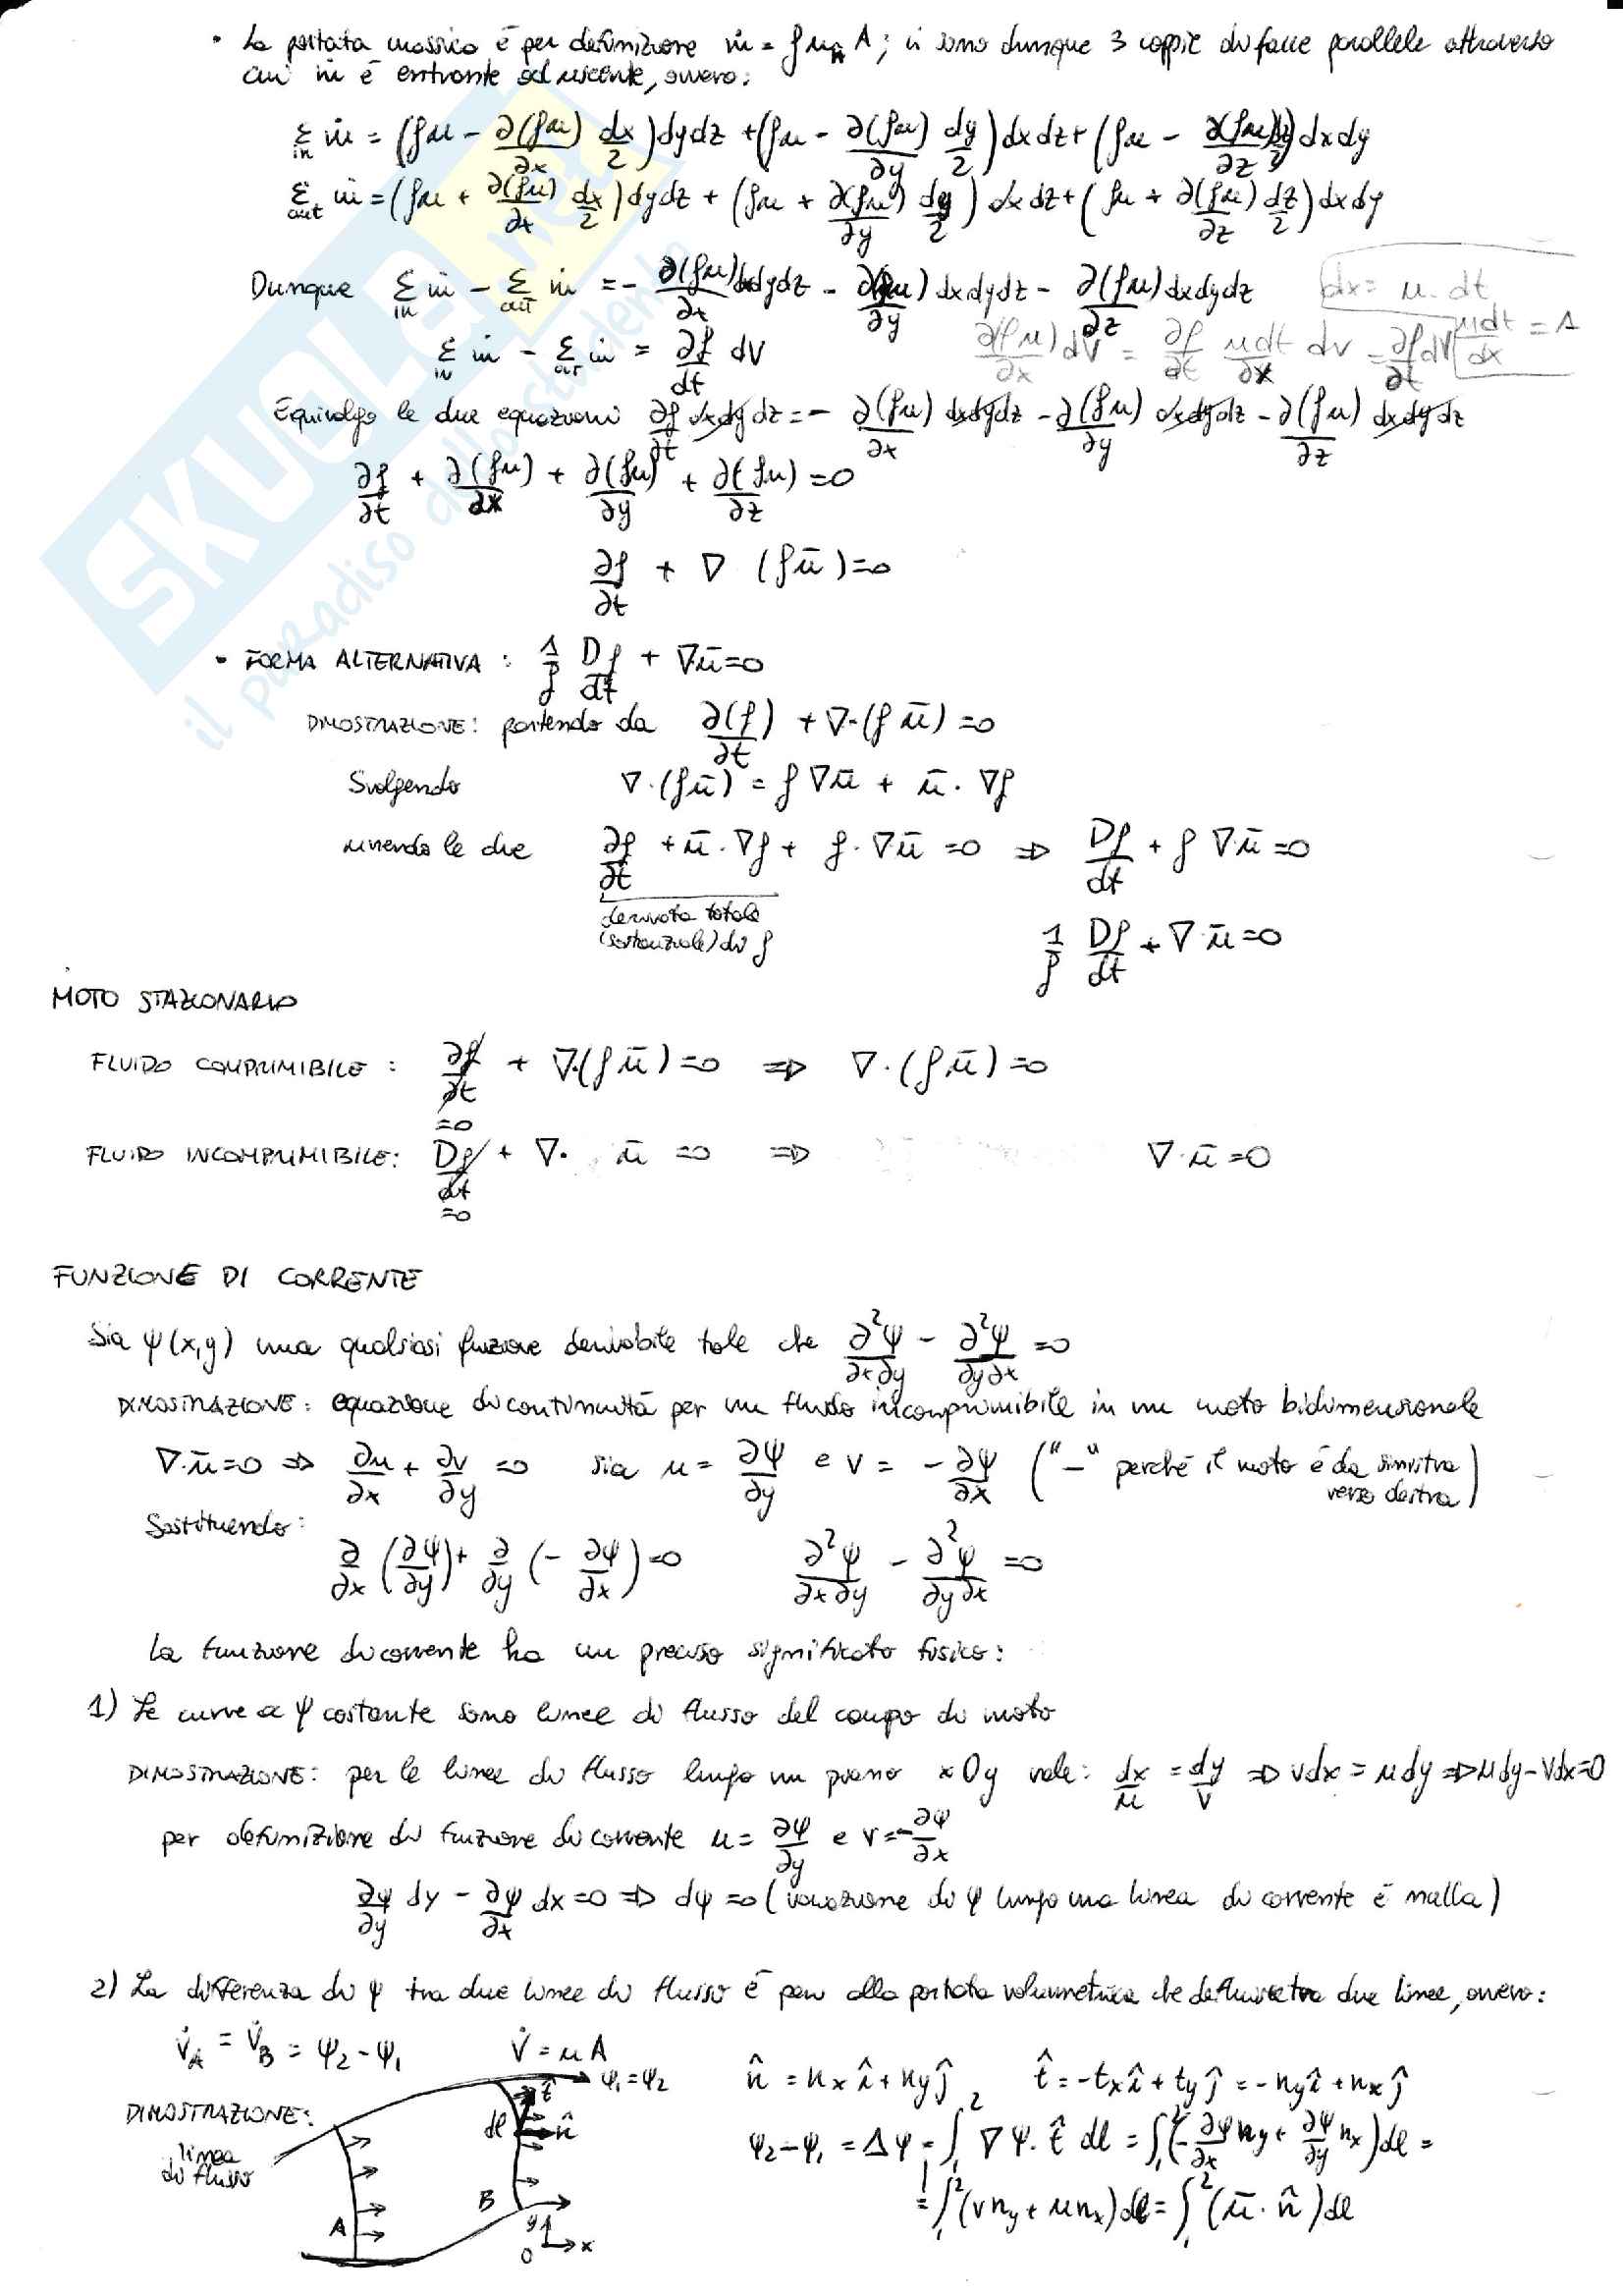 • La portata massica è per definizione ṁ = ρ uₙ A; vi sono dunque 3 coppie di facce parallele attraverso
cui ṁ è entrante ed uscente, ovvero:
Σ_in ṁ = (ρu - ∂(ρu)/∂x dx/2) dydz + (ρu - ∂(ρu)/∂y dy/2) dxdz + (ρu - ∂(ρu)/∂z dz/2) dxdy
Σ_out ṁ = (ρu + ∂(ρu)/∂x dx/2) dydz + (ρu + ∂(ρu)/∂y dy/2) dxdz + (ρu + ∂(ρu)/∂z dz/2) dxdy
Dunque Σ_in ṁ - Σ_out ṁ = - ∂(ρu)/∂x dxdydz - ∂(ρu)/∂y dxdydz - ∂(ρu)/∂z dxdydz
dx = u · dt
Σ_in ṁ - Σ_out ṁ = ∂ρ/dt dV
∂(ρu)/∂x dV = ∂ρ/∂t udt/∂x dV = ∂ρ/∂t dV udt/dx = 1
Eguaglio le due equazioni ∂ρ/∂t dxdydz = - ∂(ρu)/∂x dxdydz - ∂(ρu)/∂y dxdydz - ∂(ρu)/∂z dxdydz
∂ρ/∂t + ∂(ρu)/∂x + ∂(ρu)/∂y + ∂(ρu)/∂z = 0
∂ρ/∂t + ∇ (ρū) = 0
• FORMA ALTERNATIVA: 1/ρ Dρ/dt + ∇ū = 0
DIMOSTRAZIONE: partendo da ∂(ρ)/∂t + ∇·(ρ ū) = 0
Svolgendo ∇·(ρū) = ρ ∇ū + ū · ∇ρ
unendo le due ∂ρ/∂t + ū · ∇ρ + ρ · ∇ū = 0 ⇒ Dρ/dt + ρ ∇·ū = 0
derivata totale
(sostanziale) di ρ
1/ρ Dρ/dt + ∇·ū = 0
MOTO STAZIONARIO
FLUIDO COMPRIMIBILE: ∂ρ/∂t + ∇·(ρū) = 0 ⇒ ∇·(ρū) = 0
=0
FLUIDO INCOMPRIMIBILE: Dρ/dt + ∇· ū = 0 ⇒ ∇·ū = 0
=0
FUNZIONE DI CORRENTE
Sia ψ(x,y) una qualsiasi funzione derivabile tale che ∂²ψ/∂x∂y - ∂²ψ/∂y∂x = 0
DIMOSTRAZIONE: equazione di continuità per un fluido incomprimibile in un moto bidimensionale
∇·ū = 0 ⇒ ∂u/∂x + ∂v/∂y = 0 sia u = ∂ψ/∂y e v = - ∂ψ/∂x ("-" perché il moto è da sinistra
verso destra)
Sostituendo:
∂/∂x (∂ψ/∂y) + ∂/∂y (- ∂ψ/∂x) = 0 ∂²ψ/∂x∂y - ∂²ψ/∂y∂x = 0
La funzione di corrente ha un preciso significato fisico:
1) Le curve a ψ costante sono linee di flusso del campo di moto
DIMOSTRAZIONE: per le linee di flusso lungo un piano xOy vale: dx/u = dy/v ⇒ vdx = udy ⇒ udy - vdx = 0
per definizione di funzione di corrente u = ∂ψ/∂y e v = - ∂ψ/∂x
∂ψ/∂y dy - ∂ψ/∂x dx = 0 ⇒ dψ = 0 (variazione di ψ lungo una linea di corrente è nulla)
2) La differenza di ψ tra due linee di flusso è pari alla portata volumetrica che defluisce tra due linee, ovvero:
V̇_A = V̇_B = ψ₂ - ψ₁ V̇ = u A
ψ₁ = ψ₂
n̂ = nₓ î + n_y ĵ t̂ = -tₓ î + t_y ĵ = -n_y î + nₓ ĵ
DIMOSTRAZIONE:
linea
di flusso
t̂
dl
n̂
A
B
y
O
x
ψ₂ - ψ₁ = Δψ = ∫₁² ∇ψ · t̂ dl = ∫₁² (- ∂ψ/∂x n_y + ∂ψ/∂y nₓ) dl =
= ∫₁² (v n_y + u nₓ) dl = ∫₁² (ū · n̂) dl
SKUOLA.net
il paradiso dello studente